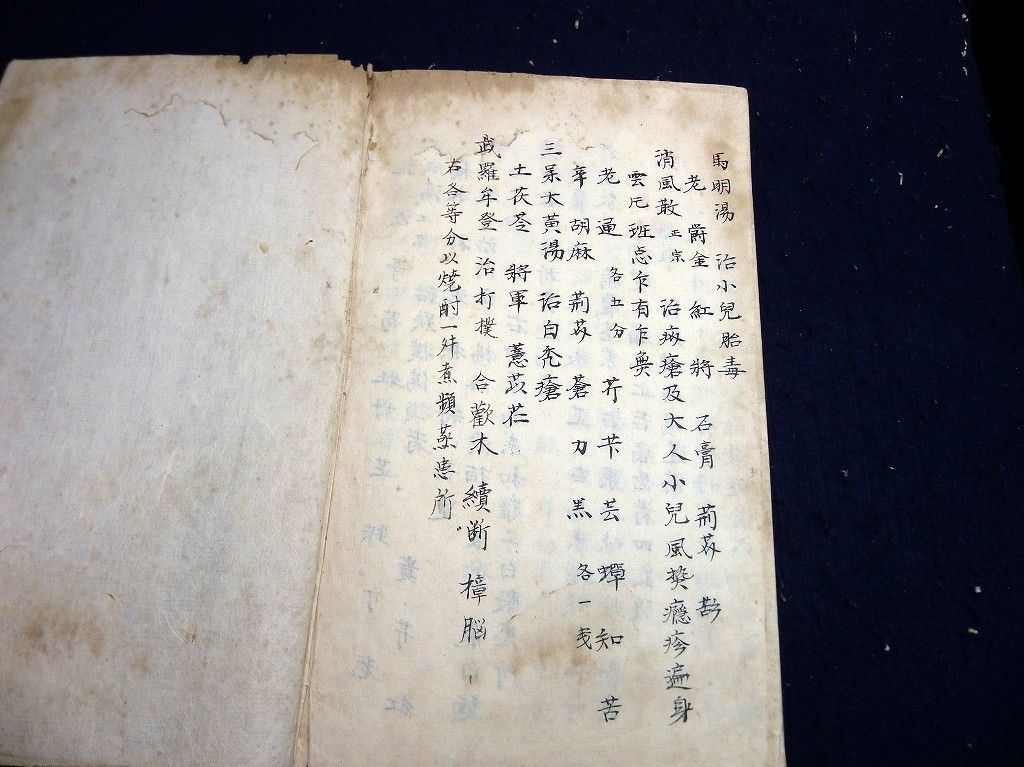 馬明湯 治小兒胎毒
老 爵金 紅 將 石膏 荊芥
消風散 正宗 治疥瘡及大人小兒風 癮疹遍身
雲 班 乍有乍無
老 通 各五分 芥 芐 芸 蟬 知 苦
辛 胡麻 荊芥 蒼 力 羔 各一戔
三 大黃湯 治白禿瘡
土茯苓 將軍 薏苡
武羅牟登 治打撲 合歡木 續断 樟脳
右各等分以焼酎一 煮頻蒸患所